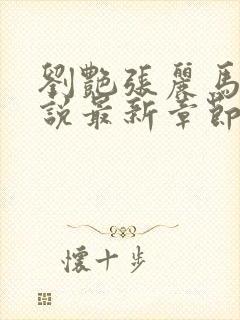 劉艷張麗馬
說最新章節
懷十步